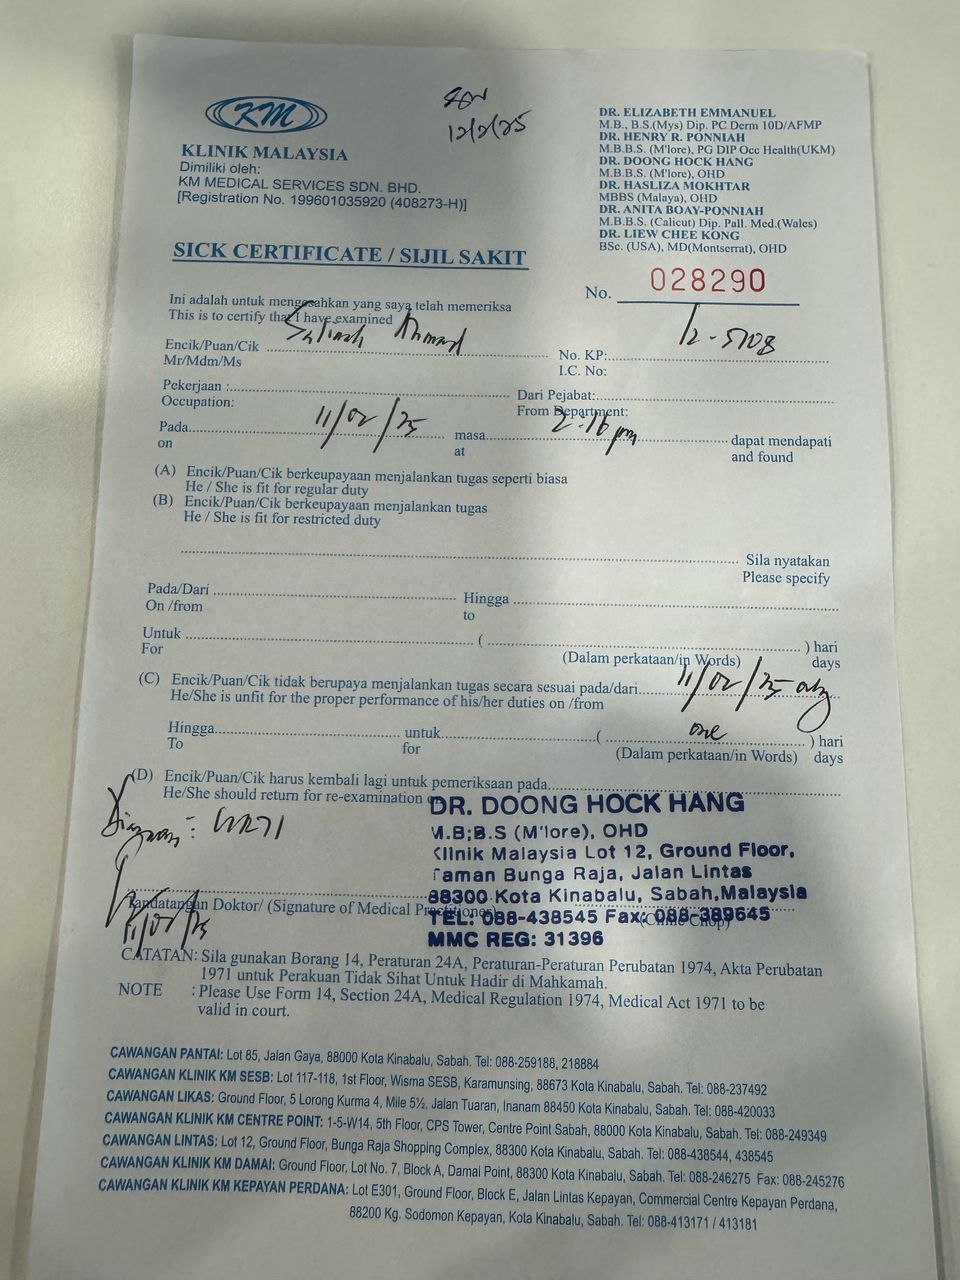 KM
KLINIK MALAYSIA
Dimiliki oleh:
KM MEDICAL SERVICES SDN. BHD.
[Registration No. 199601035920 (408273-H)]
12/2/25
DR. ELIZABETH EMMANUEL
M.B., B.S.(Mys) Dip. PC Derm 10D/AFMP
DR. HENRY R. PONNIAH
M.B.B.S. (M'lore), PG DIP Occ Health(UKM)
DR. DOONG HOCK HANG
M.B.B.S. (M'lore), OHD
DR. HASLIZA MOKHTAR
MBBS (Malaya), OHD
DR. ANITA BOAY-PONNIAH
M.B.B.S. (Calicut) Dip. Pall. Med.(Wales)
DR. LIEW CHEE KONG
BSc. (USA), MD(Montserrat), OHD
SICK CERTIFICATE / SIJIL SAKIT
No. 028290
Ini adalah untuk mengesahkan yang saya telah memeriksa
This is to certify that I have examined
Encik/Puan/Cik Ahmad
Mr/Mdm/Ms
No. KP: 12-5108
I.C. No:
Pekerjaan :
Occupation:
Dari Pejabat:
From Department:
Pada 11/02/25 masa 2.16 pm dapat mendapati
on at and found
(A) Encik/Puan/Cik berkeupayaan menjalankan tugas seperti biasa
He / She is fit for regular duty
(B) Encik/Puan/Cik berkeupayaan menjalankan tugas
He / She is fit for restricted duty
Sila nyatakan
Please specify
Pada/Dari Hingga
On /from to
Untuk ( ) hari
For (Dalam perkataan/in Words) days
(C) Encik/Puan/Cik tidak berupaya menjalankan tugas secara sesuai pada/dari 11/02/25 only
He/She is unfit for the proper performance of his/her duties on /from
Hingga untuk ( one ) hari
To for (Dalam perkataan/in Words) days
(D) Encik/Puan/Cik harus kembali lagi untuk pemeriksaan pada
He/She should return for re-examination
Diagnosis: URTI
DR. DOONG HOCK HANG
M.B;B.S (M'lore), OHD
Klinik Malaysia Lot 12, Ground Floor,
Taman Bunga Raja, Jalan Lintas
88300 Kota Kinabalu, Sabah,Malaysia
TEL: 088-438545 Fax: 088-389645
MMC REG: 31396
Tandatangan Doktor/ (Signature of Medical Practitioner)
(Clinic Chop)
11/02/25
CATATAN: Sila gunakan Borang 14, Peraturan 24A, Peraturan-Peraturan Perubatan 1974, Akta Perubatan
1971 untuk Perakuan Tidak Sihat Untuk Hadir di Mahkamah.
NOTE : Please Use Form 14, Section 24A, Medical Regulation 1974, Medical Act 1971 to be
valid in court.
CAWANGAN PANTAI: Lot 85, Jalan Gaya, 88000 Kota Kinabalu, Sabah. Tel: 088-259188, 218884
CAWANGAN KLINIK KM SESB: Lot 117-118, 1st Floor, Wisma SESB, Karamunsing, 88673 Kota Kinabalu, Sabah. Tel: 088-237492
CAWANGAN LIKAS: Ground Floor, 5 Lorong Kurma 4, Mile 5½, Jalan Tuaran, Inanam 88450 Kota Kinabalu, Sabah. Tel: 088-420033
CAWANGAN KLINIK KM CENTRE POINT: 1-5-W14, 5th Floor, CPS Tower, Centre Point Sabah, 88000 Kota Kinabalu, Sabah. Tel: 088-249349
CAWANGAN LINTAS: Lot 12, Ground Floor, Bunga Raja Shopping Complex, 88300 Kota Kinabalu, Sabah. Tel: 088-438544, 438545
CAWANGAN KLINIK KM DAMAI: Ground Floor, Lot No. 7, Block A, Damai Point, 88300 Kota Kinabalu, Sabah. Tel: 088-246275 Fax: 088-245276
CAWANGAN KLINIK KM KEPAYAN PERDANA: Lot E301, Ground Floor, Block E, Jalan Lintas Kepayan, Commercial Centre Kepayan Perdana,
88200 Kg. Sodomon Kepayan, Kota Kinabalu, Sabah. Tel: 088-413171 / 413181